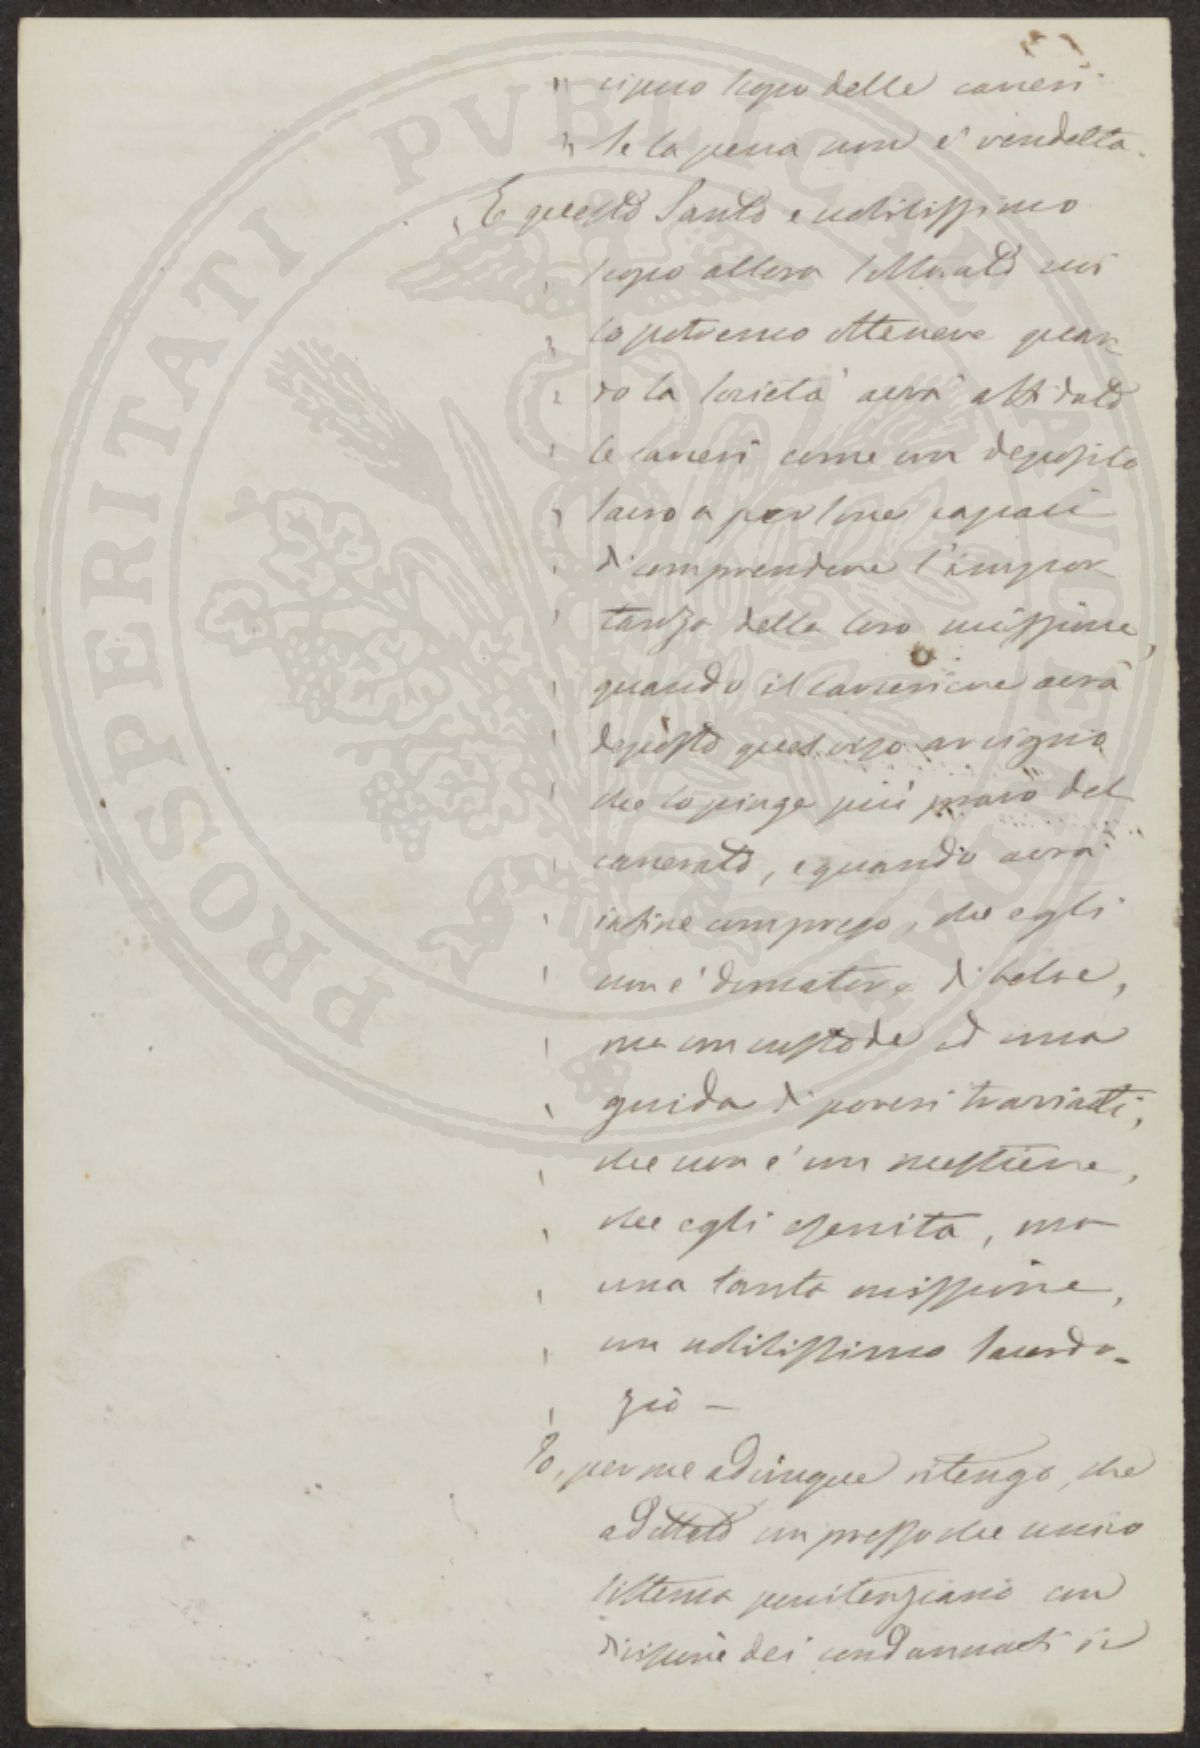 " cipuo scopo delle carceri
" se la pena non è vendetta.
" E questo santo e nobilissimo
" scopo allora soltanto noi
" lo potremo ottenere quan-
" do la società avrà affidato
" le carceri come un deposito
" sacro a persone capaci
" di comprendere l'impor
" tanza della loro missione,
" quando il carceriere avrà
" deposto quel viso arcigno
" che lo pinge più pravo del
" carcerato, e quando avrà
" infine compreso, che egli
" non è domatore di belve,
" ma un custode ed una
" guida di poveri traviati,
" che non è un mestiere,
" che egli esercita, ma
" una santa missione,
" un nobilissimo sacerdo-
" zio —
Io, per me adunque ritengo, che
adottato un presso che unico
sistema penitenziario con
divisione dei condannati in
PROSPERITATI PUBLICAE AUGENDAE